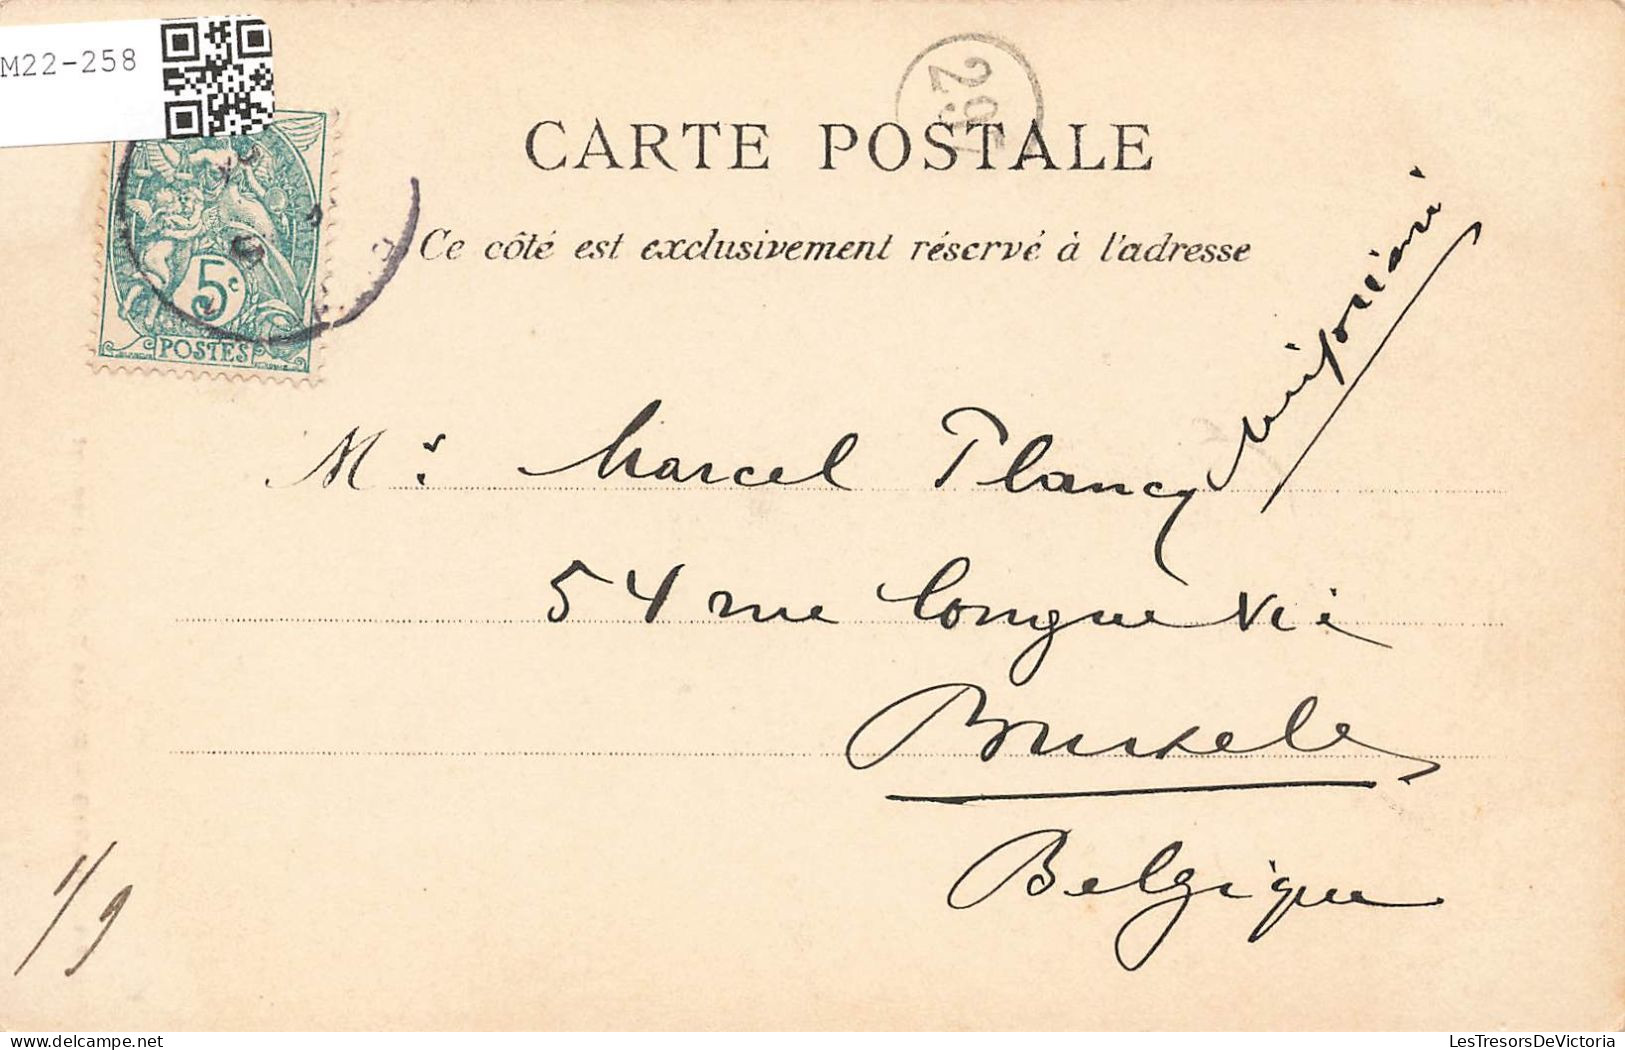 M22-258
261
CARTE POSTALE
Ce côté est exclusivement réservé à l'adresse
5c
POSTES
Mr. Marcel Plancq
54 rue Longue Vie
Bruxelles
Belgique
1/9
LesTresorsDeVictoria